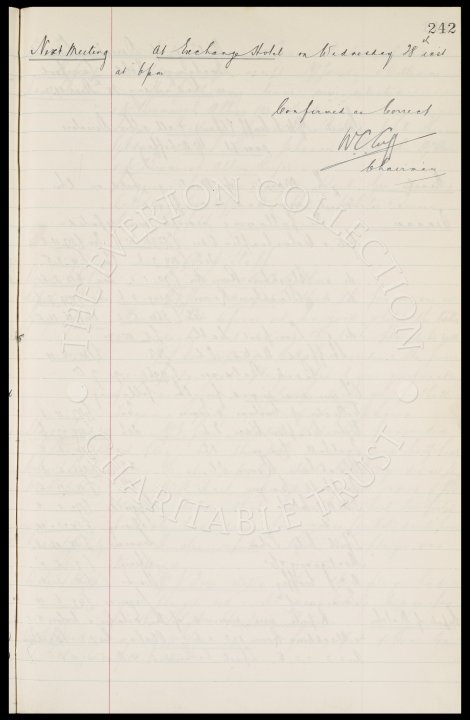 242
Next Meeting At Exchange Hotel on Wednesday 28th inst
at 6 pm
Confirmed as Correct
W C Cuff
Chairman
THE EVERTON COLLECTION
CHARITABLE TRUST